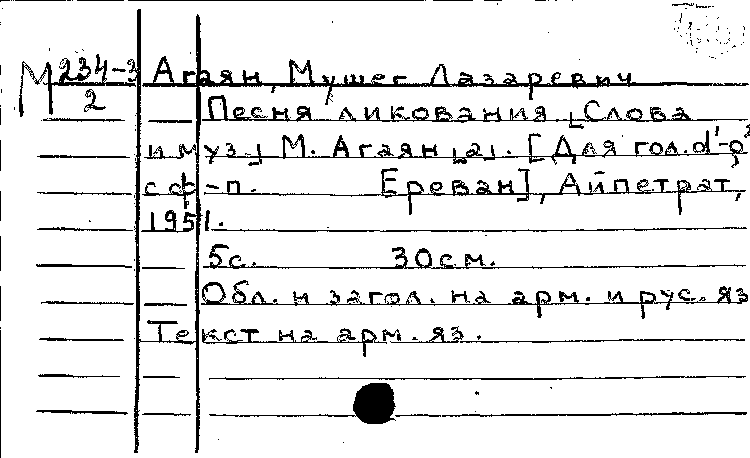 М 234-3 Агаян, Мушег Лазаревич
2 Песня ликования ⌊Слова
и муз⌋ М. Агаян⌊а⌋. [Для гол. d¹-g²
с ф-п. Ереван], Айпетрат,
1951.
5с. 30см.
Обл. и загол. на арм. и рус. яз
Текст на арм. яз.